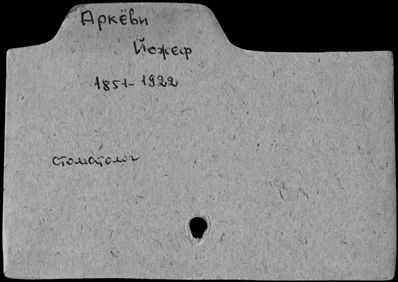 Аркёви
Йожеф
1851-1922
стоматолог